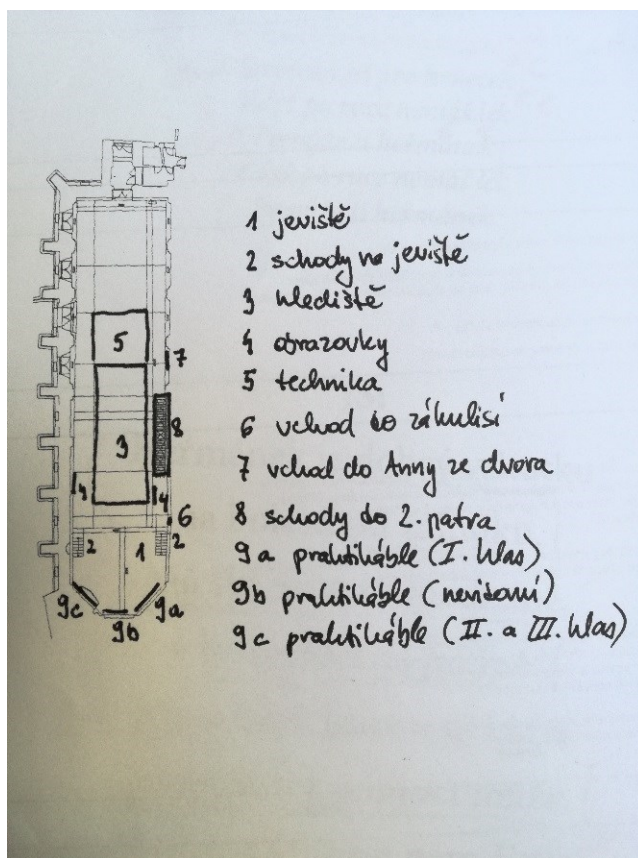 5
7
3
8
4
4
6
2
1
2
9c
9b
9a
1 jeviště
2 schody na jeviště
3 hlediště
4 obrazovky
5 technika
6 vchod do zákulisí
7 vchod do Anny ze dvora
8 schody do 2. patra
9a praktikáble (I. hlas)
9b praktikáble (nevidomí)
9c praktikáble (II. a III. hlas)